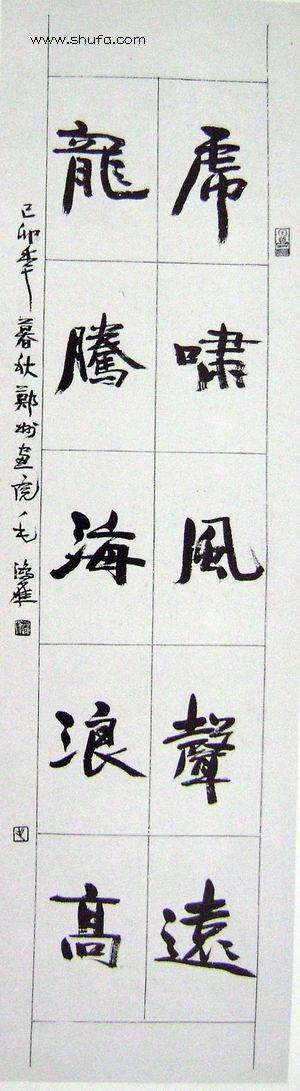 www.shufa.com
虎嘯風聲遠
龍騰海浪高
己卯年暮秋鄭州畫院毛